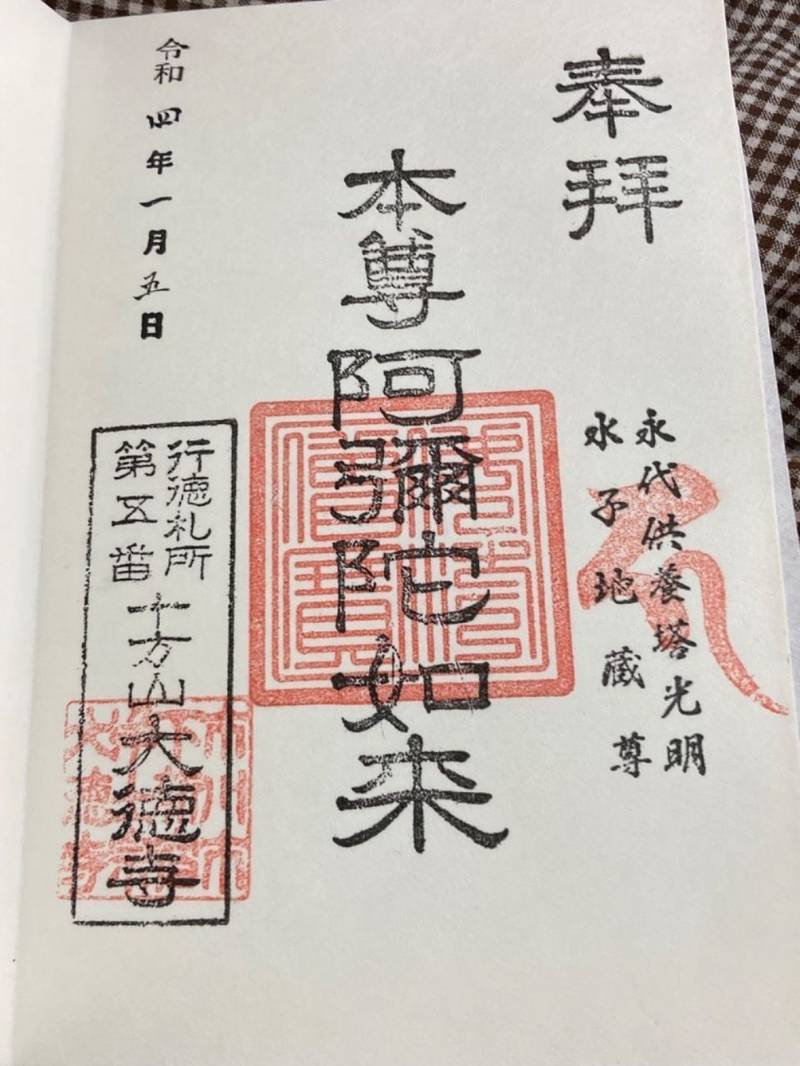 奉拝
永代供養塔光明
水子地蔵尊
本尊阿彌陀如来
令和四年一月五日
行徳札所
第五番
十方山大徳寺